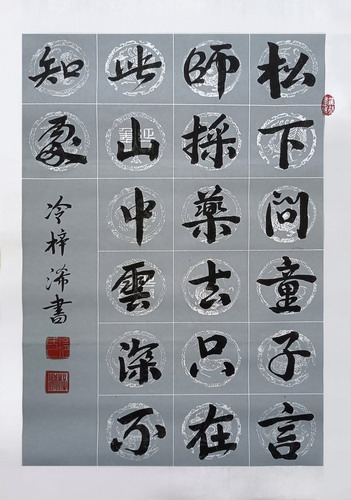 松下問童子言
師採藥去只在
此山中雲深不
知處
冷梓浠書